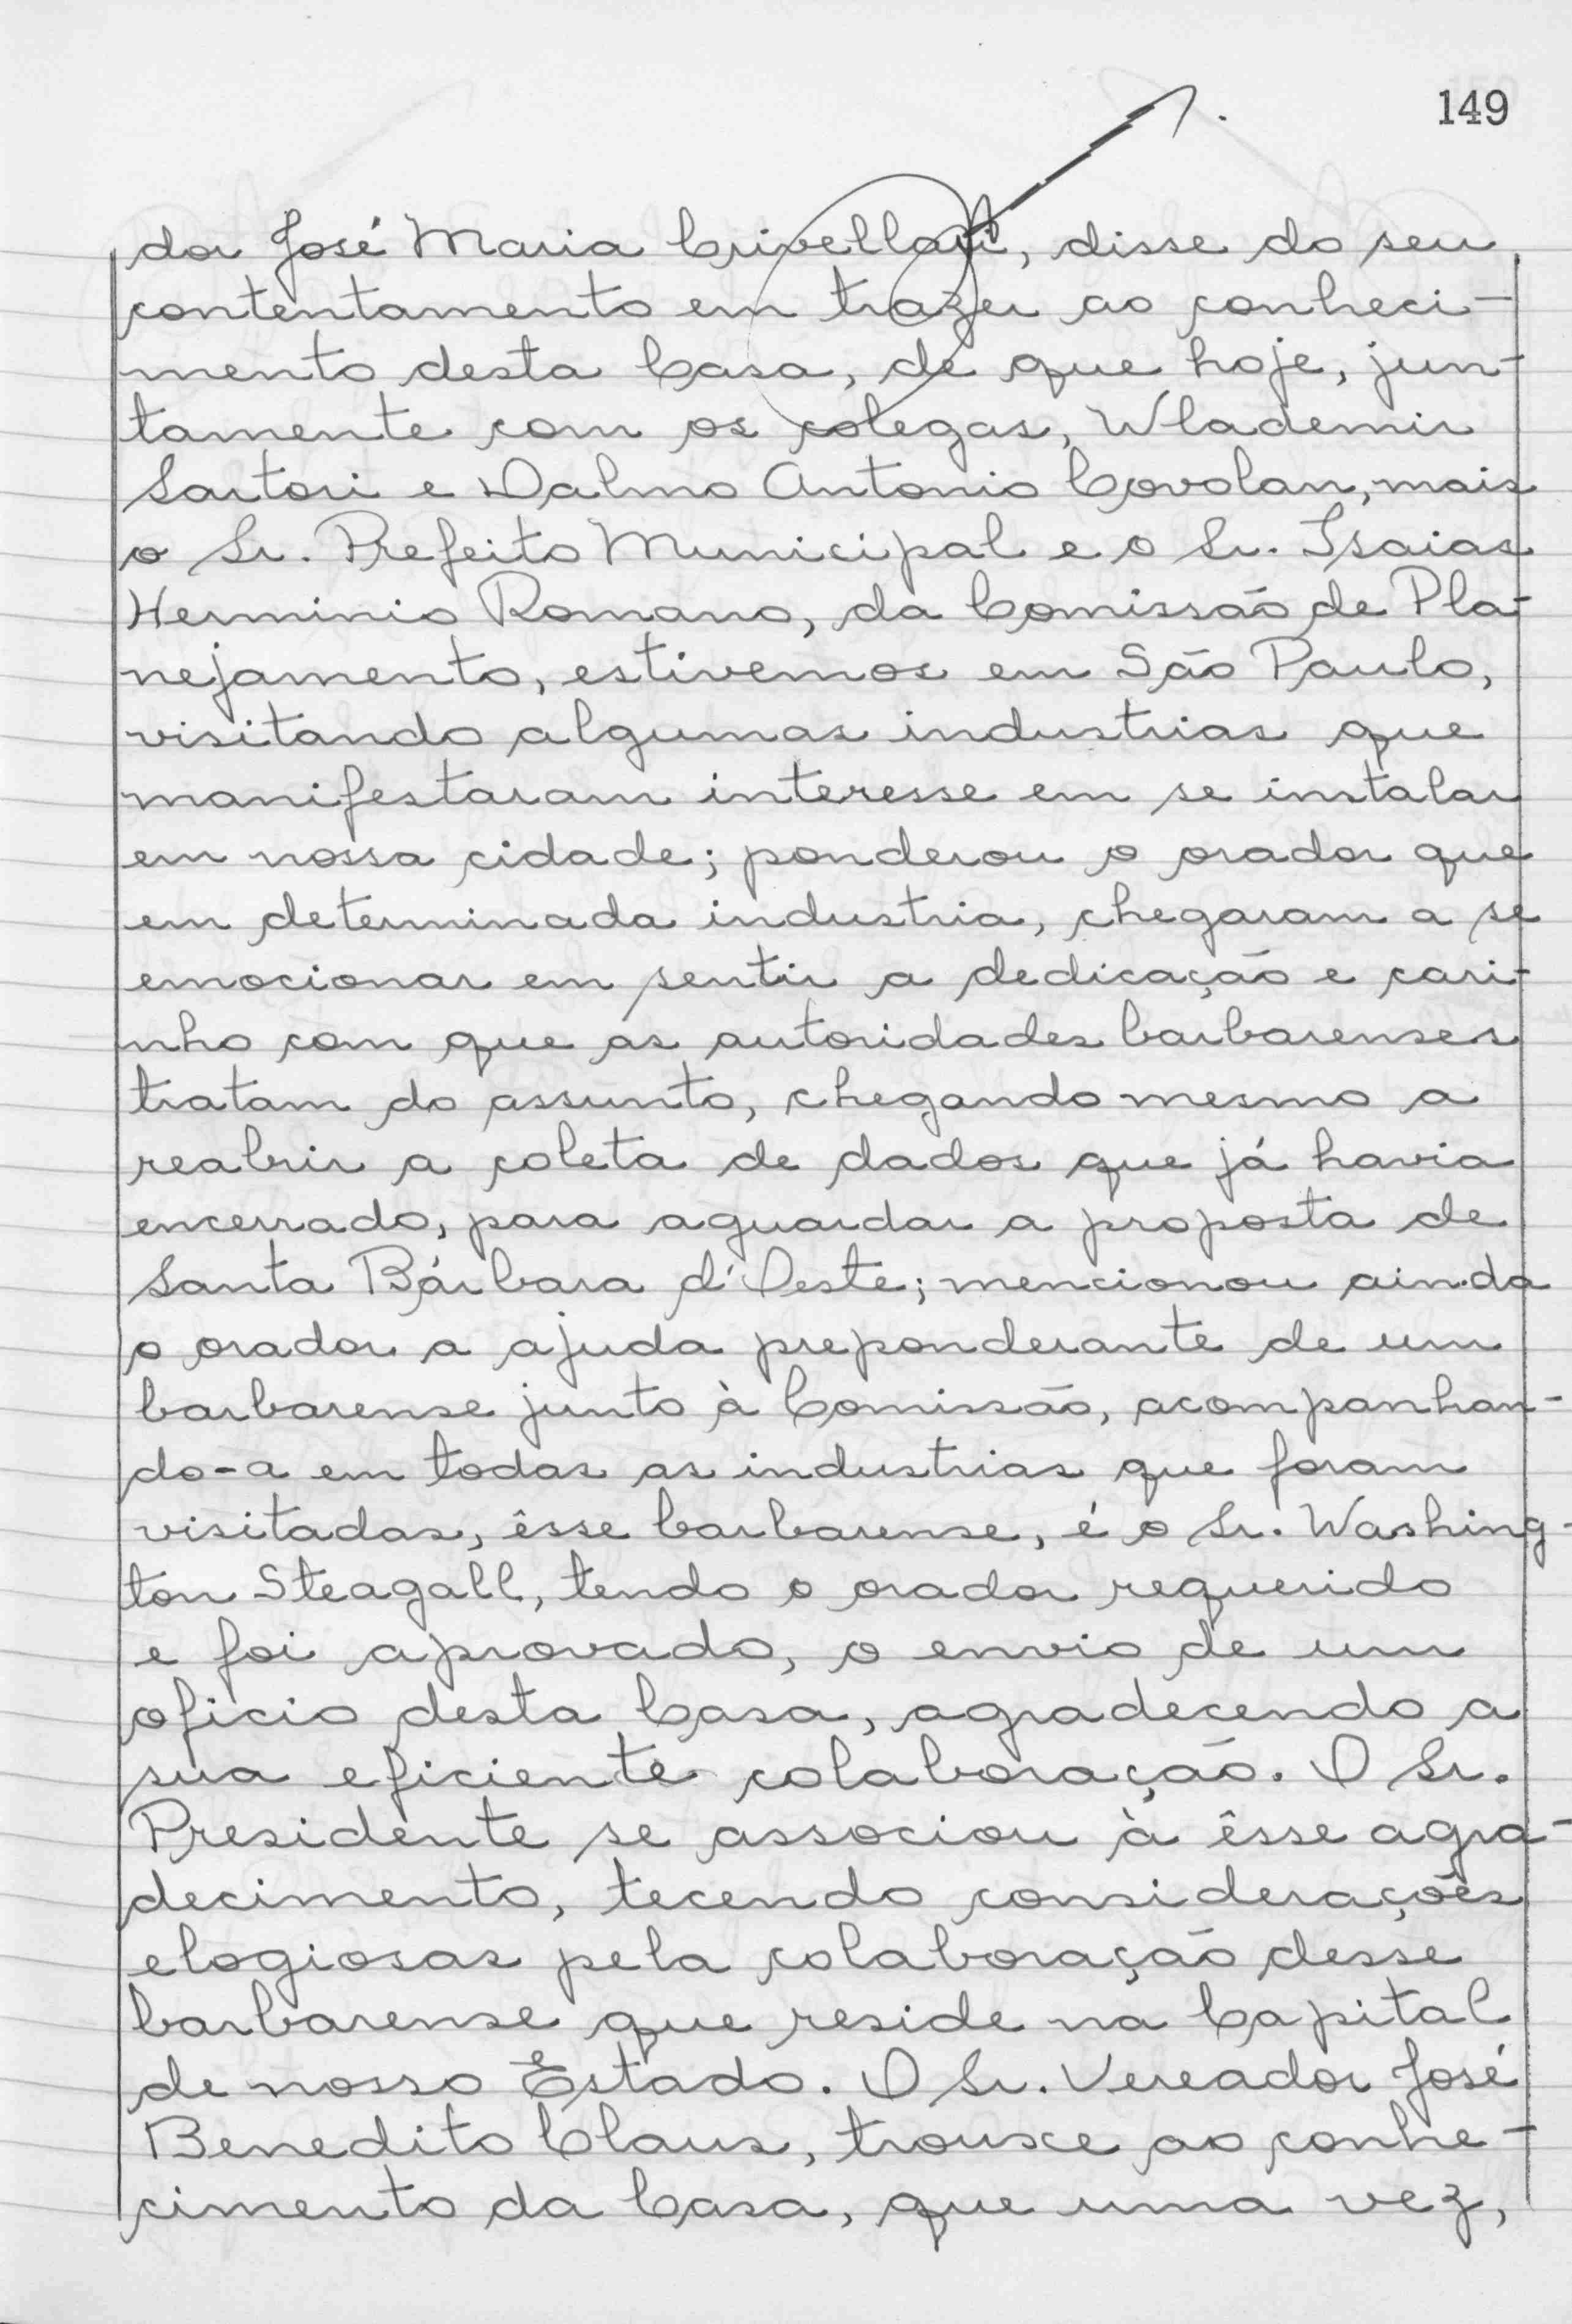 149
dor José Maria Crivellari, disse do seu
contentamento em trazer ao conheci-
mento desta Casa, de que hoje, jun-
tamente com os colegas, Wlademir
Sartori e Dalmo Antonio Covolan, mais
o Sr. Prefeito Municipal e o Sr. Isaias
Herminio Romano, da Comissão de Pla-
nejamento, estivemos em São Paulo,
visitando algumas industrias que
manifestaram interesse em se instalar
em nossa cidade; ponderou o orador que
em determinada industria, chegaram a se
emocionar em sentir a dedicação e cari-
nho com que as autoridades barbarenses
tratam do assunto, chegando mesmo a
reabrir a coleta de dados que já havia
encerrado, para aguardar a proposta de
Santa Bárbara d'Oeste; mencionou ainda
o orador a ajuda preponderante de um
barbarense junto à Comissão, acompanhan-
do-a em todas as industrias que foram
visitadas, êsse barbarense, é o Sr. Washing-
ton Steagall, tendo o orador requerido
e foi aprovado, o envio de um
oficio desta Casa, agradecendo a
sua eficiente colaboração. O Sr.
Presidente se associou à êsse agra-
decimento, tecendo considerações
elogiosas pela colaboração desse
barbarense que reside na Capital
de nosso Estado. O Sr. Vereador José
Benedito Claus, trouxe ao conhe-
cimento da Casa, que uma vez,